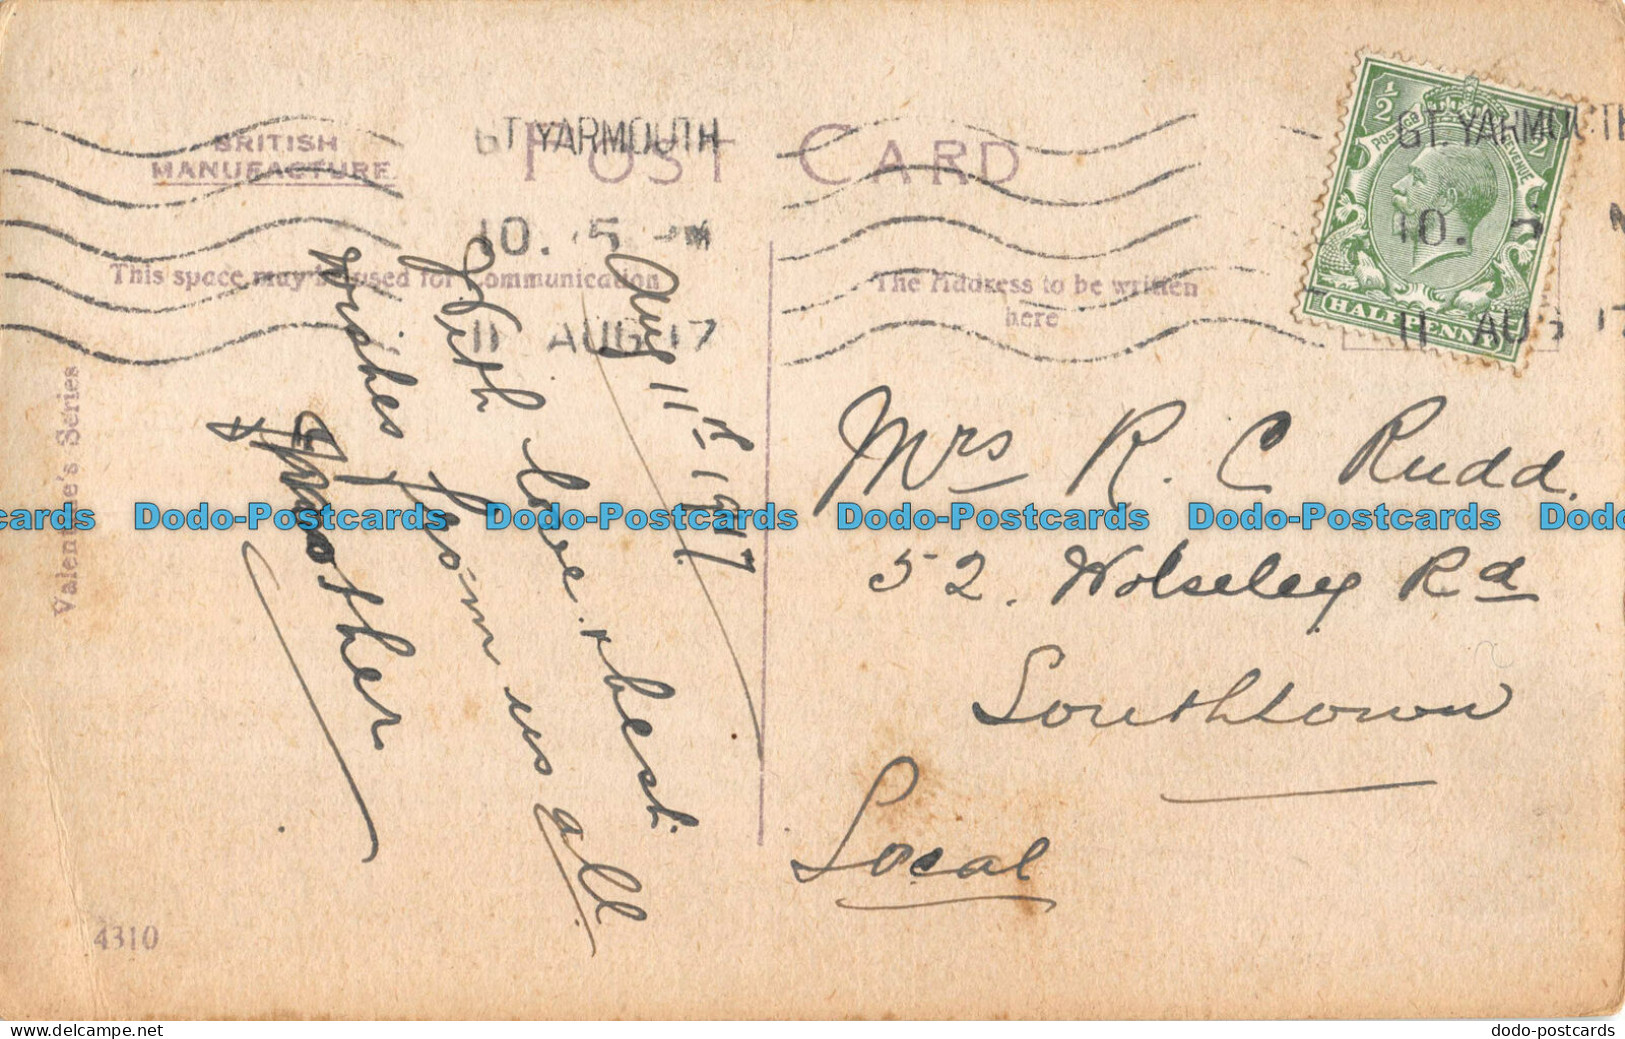 BRITISH
MANUFACTURE
POST CARD
GT. YARMOUTH
10. 5 M
11 AUG 17
This space may be used for Communication
The Address to be written
here
½ ½
POSTAGE REVENUE
HALFPENNY
GT. YARMOUTH
10. 5
11 AUG 17
Valentine's Series
Aug 11th 1917
With love & best
wishes from us all
Mother
Mrs R. C Rudd.
52. Wolseley Rd
Southtown
Local
4310
Dodo-Postcards Dodo-Postcards Dodo-Postcards Dodo-Postcards
delcampe.net
dodo-postcards